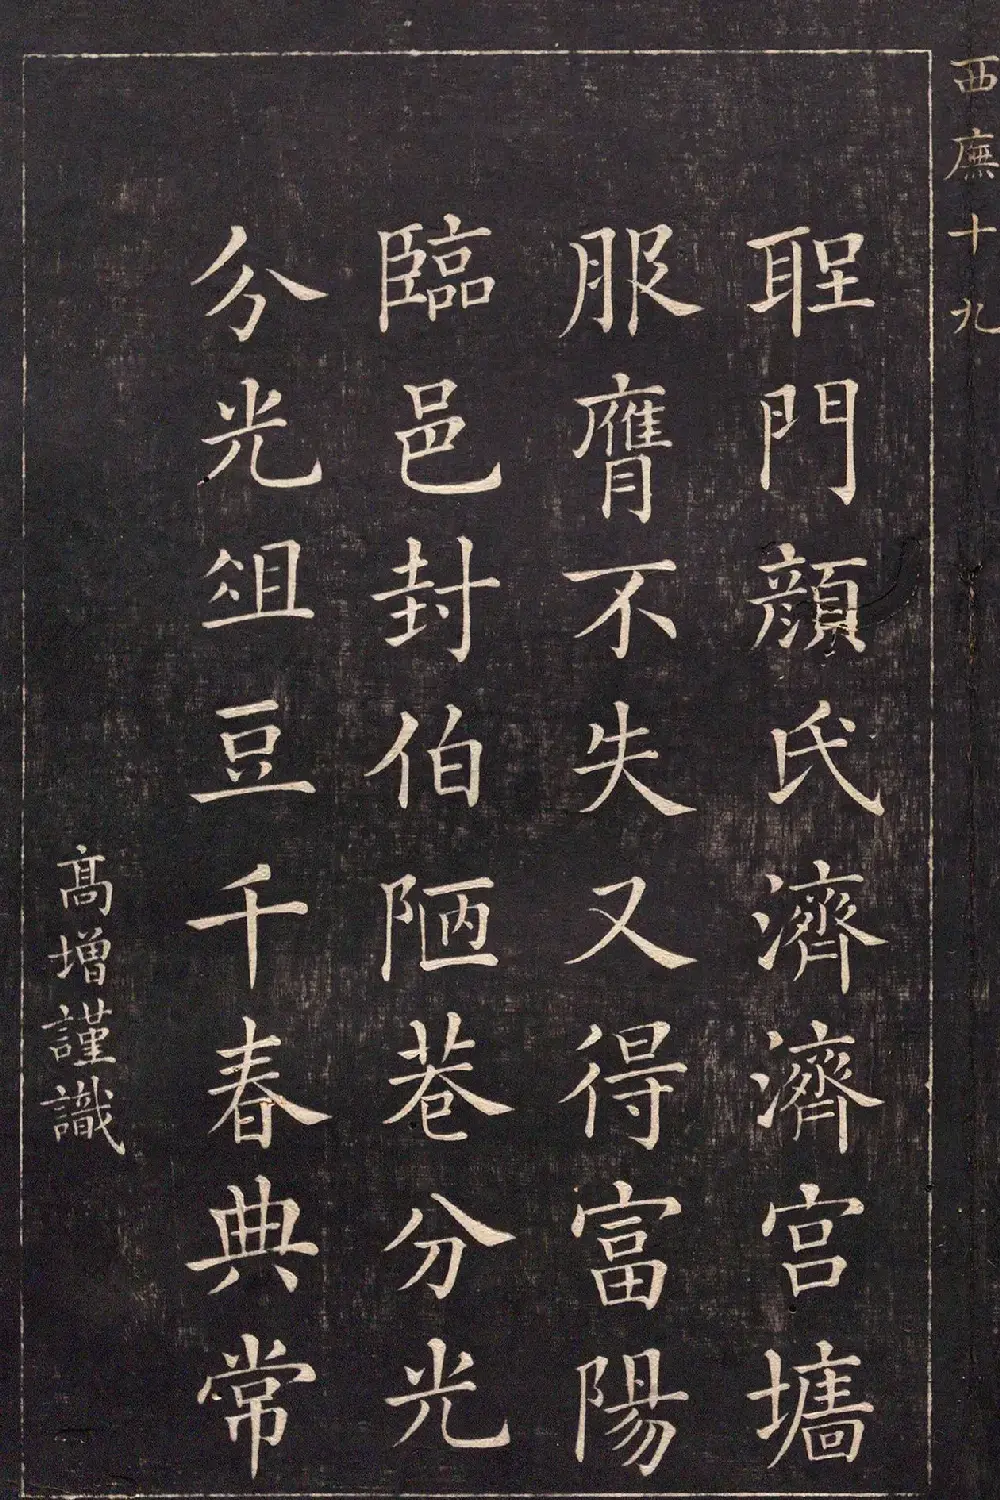 西廡十九
聖門顏氏濟濟宮墻
服膺不失又得富陽
臨邑封伯陋巷分光
分光俎豆千春典常
高增謹識